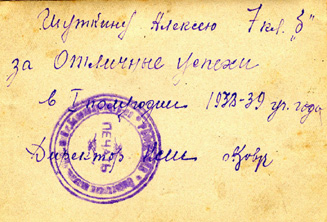 Шуткину Алексею 7 кл. "б"
за Отличные успехи
в I полугодии 1938-39 уч. года
ПЕЧАТЬ
Директор